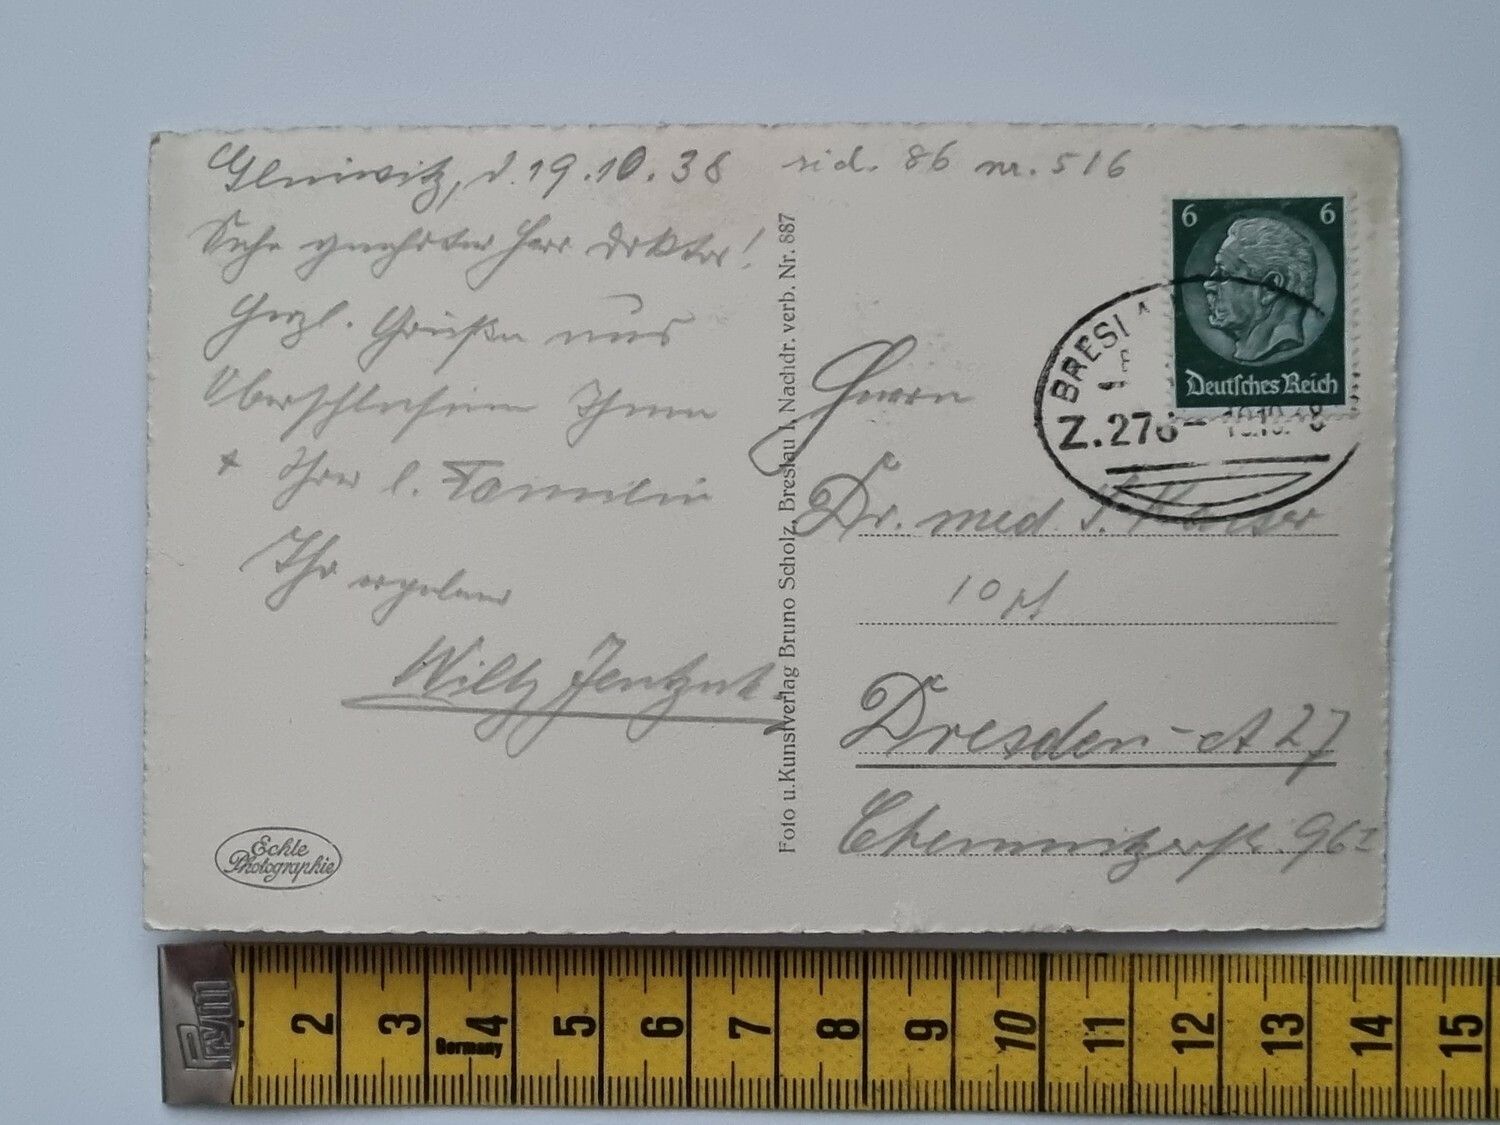 Gleiwitz, d. 19.10.38
rid. 86 nr. 516
Sehr geehrter Herr Doktor!
Herzl. Grüße aus
Oberschlesien Ihnen
+ Ihrer l. Familie
Ihr ergebener
Willy
Echte
Photographie
Foto u. Kunstverlag Bruno Scholz, Breslau I, Nachdr. verb. Nr. 887
6 6
Deutsches Reich
BRESLA
Z.276
Herrn
Dr. med. Kaiser
10
Dresden-A 27
Chemnitzerstr. 96
Prym
2 3 4 5 6 7 8 9 10 11 12 13 14 15
Germany